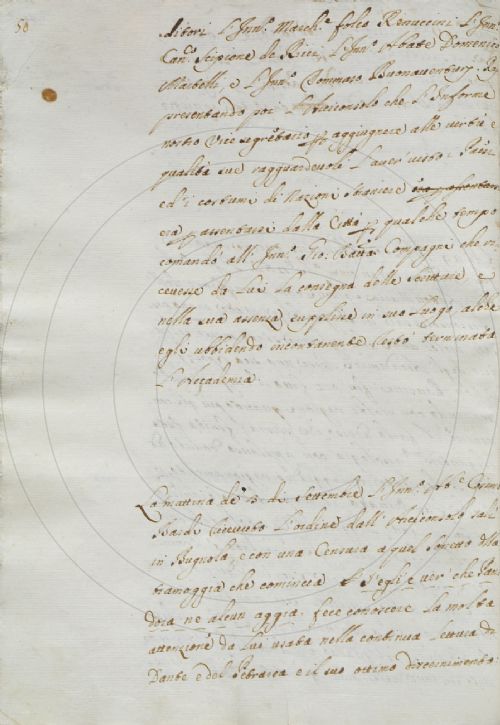 50
ditori L'Inn.º March.e folco Renuccini L'Inn.º
Can.º Scipione de Ricci, L'Inn.º Abate Domenico
Martelli, e L'Inn.º Tommaso Buonaventuri
presentando poi L'Arciconsolo che L'Informe
nostro Vicesegretario p aggiugnere alle virtù e
qualità sue ragguardevoli L'aver visto i Paesi
ed i costumi di Nazioni straniere
era p assentarsi dalla Città p qualche tempo
comandò all'Inn.º Gio. Batta Compagni che ri
cevesse da Lui La consegna delle scritture e
nella sua assenza supplisse in suo Luogo, al che
egli ubbidendo incontanente resto terminata
L'Accademia.
La mattina de' 3. di Settembre L'Inn.º Ab.e Cosimo
Bardi ricevuto L'ordine dall'Arciconsolo salì
in Bugnola, e con una Censura a quel Sonetto della
tramoggia che comincia S'egli e ver che Pan
dora ne alcun aggia. fece conoscere La molta
attenzione da Lui usata nella continua Lettura di
Dante e del Petrarca e il suo ottimo discernimento: